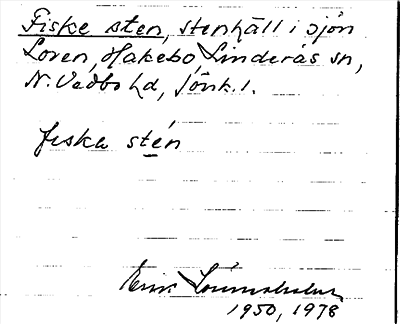 Fiske sten, stenhäll i sjön
Loren, Hakebo, Linderås sn,
N. Vedbo hd, Jönk. l.
fiska stén
1950, 1978